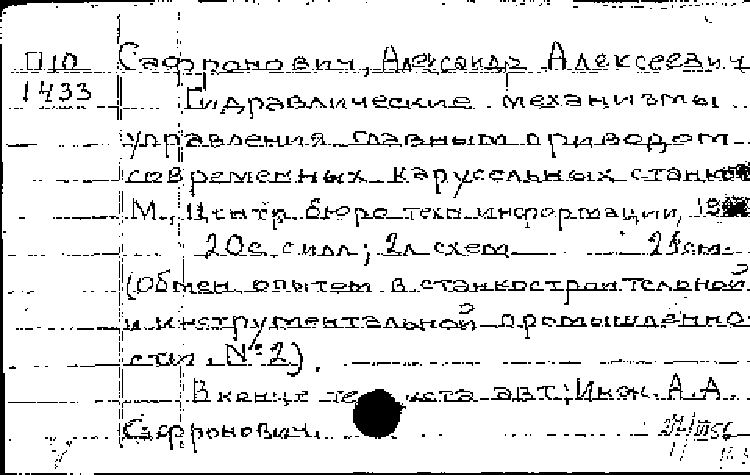 П10 Сафронович, Александр Алексеевич
1433 Гидравлические механизмы
управления главным приводом
современных карусельных станков
М., Центр. бюро техн. информации, 19
20 с. с илл; 2 л схем 21 см.
(Обмен опытом в станкостроительной
и инструментальной промышленно-
сти. № 2).
В конце текста авт: Инж. А. А.
Сафронович.